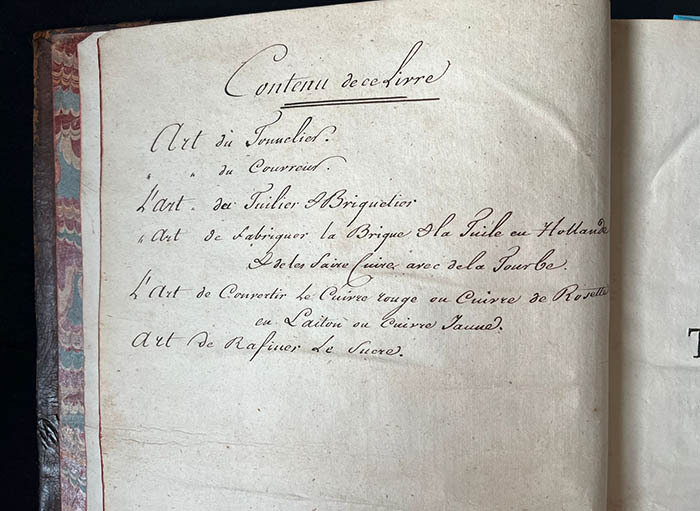 Contenu de ce Livre
Art du Tonnelier.
" " du Couvreur.
L'art. du Tuilier & Briquetier
" Art de fabriquer la Brique & la Tuile en Hollande
& de les faire Cuire, avec de la Tourbe.
L'Art de Convertir Le Cuivre rouge ou Cuivre de Rosette
en Laiton ou Cuivre Jaune.
Art de Rafiner Le Sucre.
T